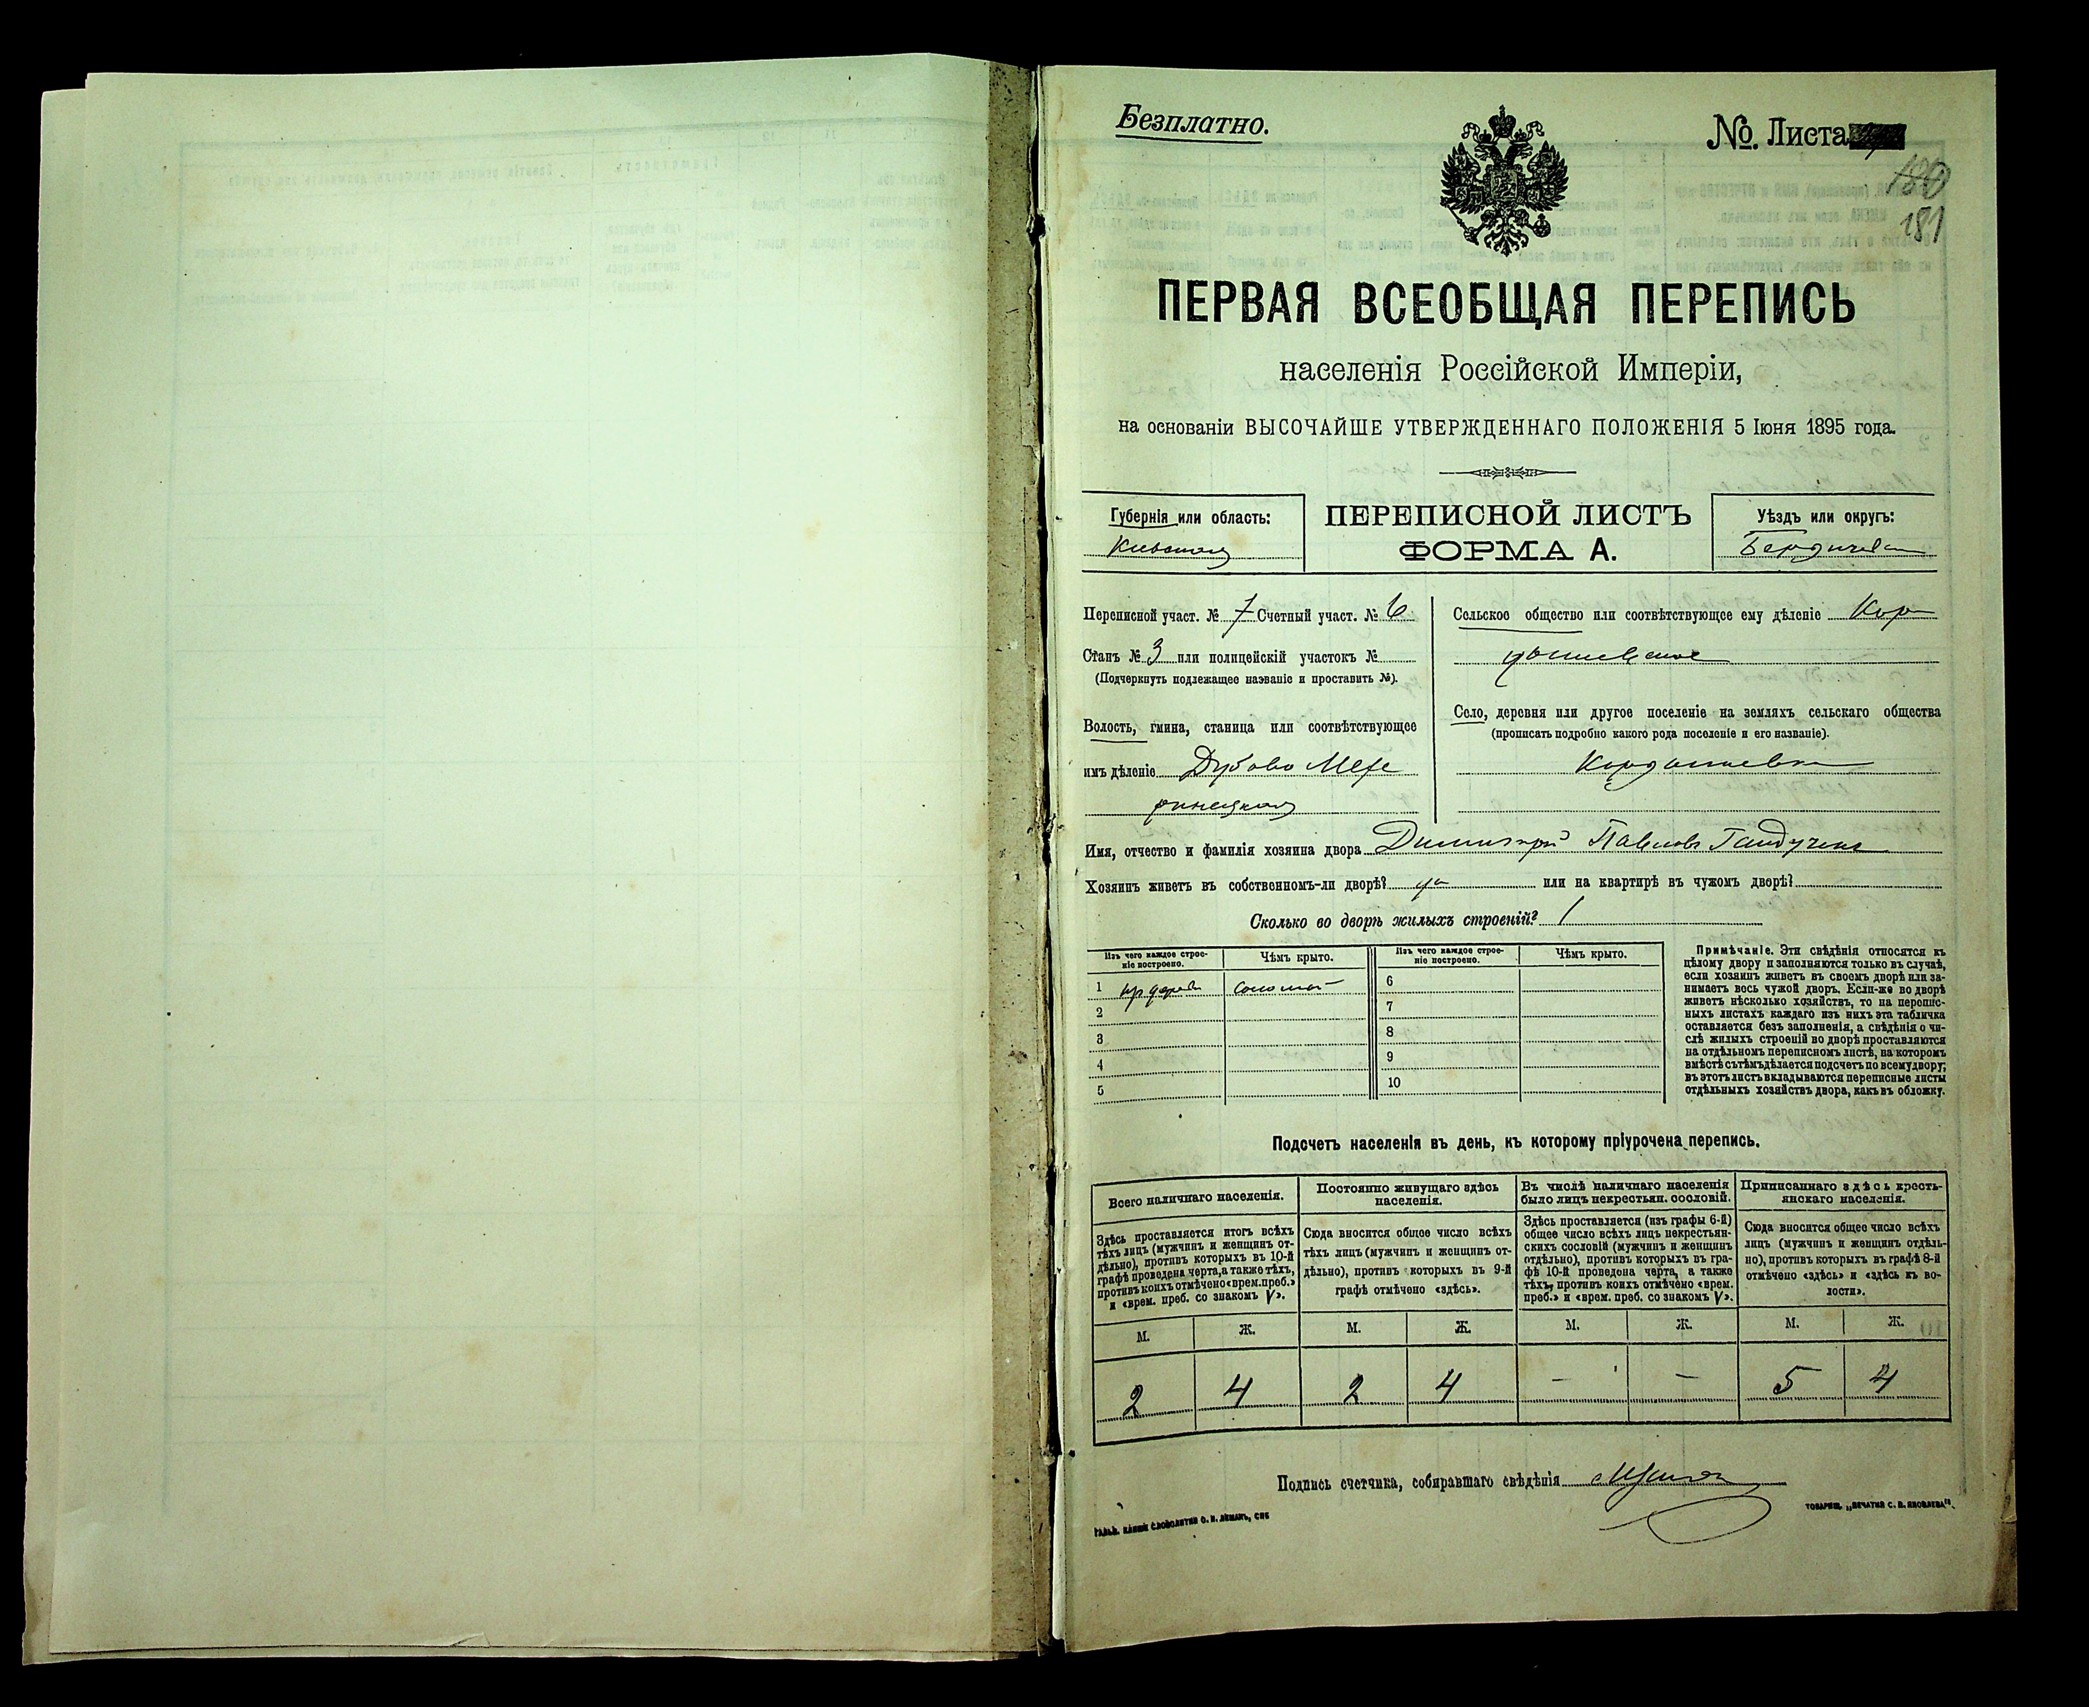 Безплатно.
№. Листа
180
181
ПЕРВАЯ ВСЕОБЩАЯ ПЕРЕПИСЬ
населенія Россійской Имперіи,
на основаніи ВЫСОЧАЙШЕ УТВЕРЖДЕННАГО ПОЛОЖЕНІЯ 5 Іюня 1895 года.
Губернія или область:
Кіевская
ПЕРЕПИСНОЙ ЛИСТЪ
ФОРМА А.
Уѣздъ или округъ:
Бердичевск
Переписной участ. № 7 Счетный участ. № 6
Станъ № 3 или полицейскій участокъ №
(Подчеркнуть подлежащее названіе и проставить №).
Волость, гмина, станица или соотвѣтствующее
имъ дѣленіе Дубово Меже
ринецкая
Сельское общество или соотвѣтствующее ему дѣленіе Кор
дышевское
Село, деревня или другое поселеніе на земляхъ сельскаго общества
(прописать подробно какого рода поселеніе и его названіе).
Кордышевка
Имя, отчество и фамилія хозяина двора Димитрій Павловъ
Хозяинъ живетъ въ собственномъ-ли дворѣ? да или на квартирѣ въ чужомъ дворѣ?
Сколько во дворѣ жилыхъ строеній? 1
Изъ чего каждое строе-
ніе построено.
Чѣмъ крыто.
Изъ чего каждое строе-
ніе построено.
Чѣмъ крыто.
1 соломой
2
3
4
5
6
7
8
9
10
Примѣчаніе. Эти свѣдѣнія относятся къ
цѣлому двору и заполняются только въ случаѣ,
если хозяинъ живетъ въ своемъ дворѣ или за-
нимаетъ весь чужой дворъ. Если-же во дворѣ
живетъ нѣсколько хозяйствъ, то на перепис-
ныхъ листахъ каждаго изъ нихъ эта табличка
оставляется безъ заполненія, а свѣдѣнія о чи-
слѣ жилыхъ строеній во дворѣ проставляются
на отдѣльномъ переписномъ листѣ, на которомъ
вмѣстѣ съ тѣмъ дѣлается подсчетъ по всему двору;
въ этотъ листъ вкладываются переписные листы
отдѣльныхъ хозяйствъ двора, какъ въ обложку.
Подсчетъ населенія въ день, къ которому пріурочена перепись.
Всего наличнаго населенія.
Здѣсь проставляется итогъ всѣхъ
тѣхъ лицъ (мужчинъ и женщинъ от-
дѣльно), противъ которыхъ въ 10-й
графѣ проведена черта, а также тѣхъ,
противъ коихъ отмѣчено «врем. преб.»
и «врем. преб. со знакомъ V».
Постоянно живущаго здѣсь
населенія.
Сюда вносится общее число всѣхъ
тѣхъ лицъ (мужчинъ и женщинъ от-
дѣльно), противъ которыхъ въ 9-й
графѣ отмѣчено «здѣсь».
Въ числѣ наличнаго населенія
было лицъ некрестьян. сословій.
Здѣсь проставляется (изъ графы 6-й)
общее число всѣхъ лицъ некрестьян-
скихъ сословій (мужчинъ и женщинъ
отдѣльно), противъ которыхъ въ гра-
фѣ 10-й проведена черта, а также
тѣхъ, противъ коихъ отмѣчено «врем.
преб.» и «врем. преб. со знакомъ V».
Приписаннаго здѣсь кресть-
янскаго населенія.
Сюда вносится общее число всѣхъ
лицъ (мужчинъ и женщинъ отдѣль-
но), противъ которыхъ въ графѣ 8-й
отмѣчено «здѣсь» и «здѣсь къ во-
лости».
М. Ж. М. Ж. М. Ж. М. Ж.
2 4 2 4 — — 5 4
Подпись счетчика, собиравшаго свѣдѣнія
ТОВАРИЩ. „ПЕЧАТНЯ С. П. ЯКОВЛЕВА".